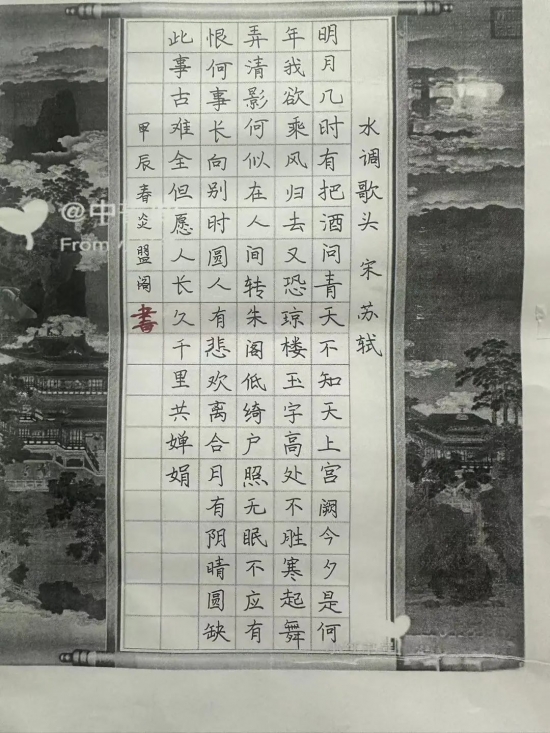 水调歌头 宋 苏轼
明月几时有把酒问青天不知天上宫阙今夕是何
年我欲乘风归去又恐琼楼玉宇高处不胜寒起舞
弄清影何似在人间转朱阁低绮户照无眠不应有
恨何事长向别时圆人有悲欢离合月有阴晴圆缺
此事古难全但愿人长久千里共婵娟
甲辰春炎盟阁書
From